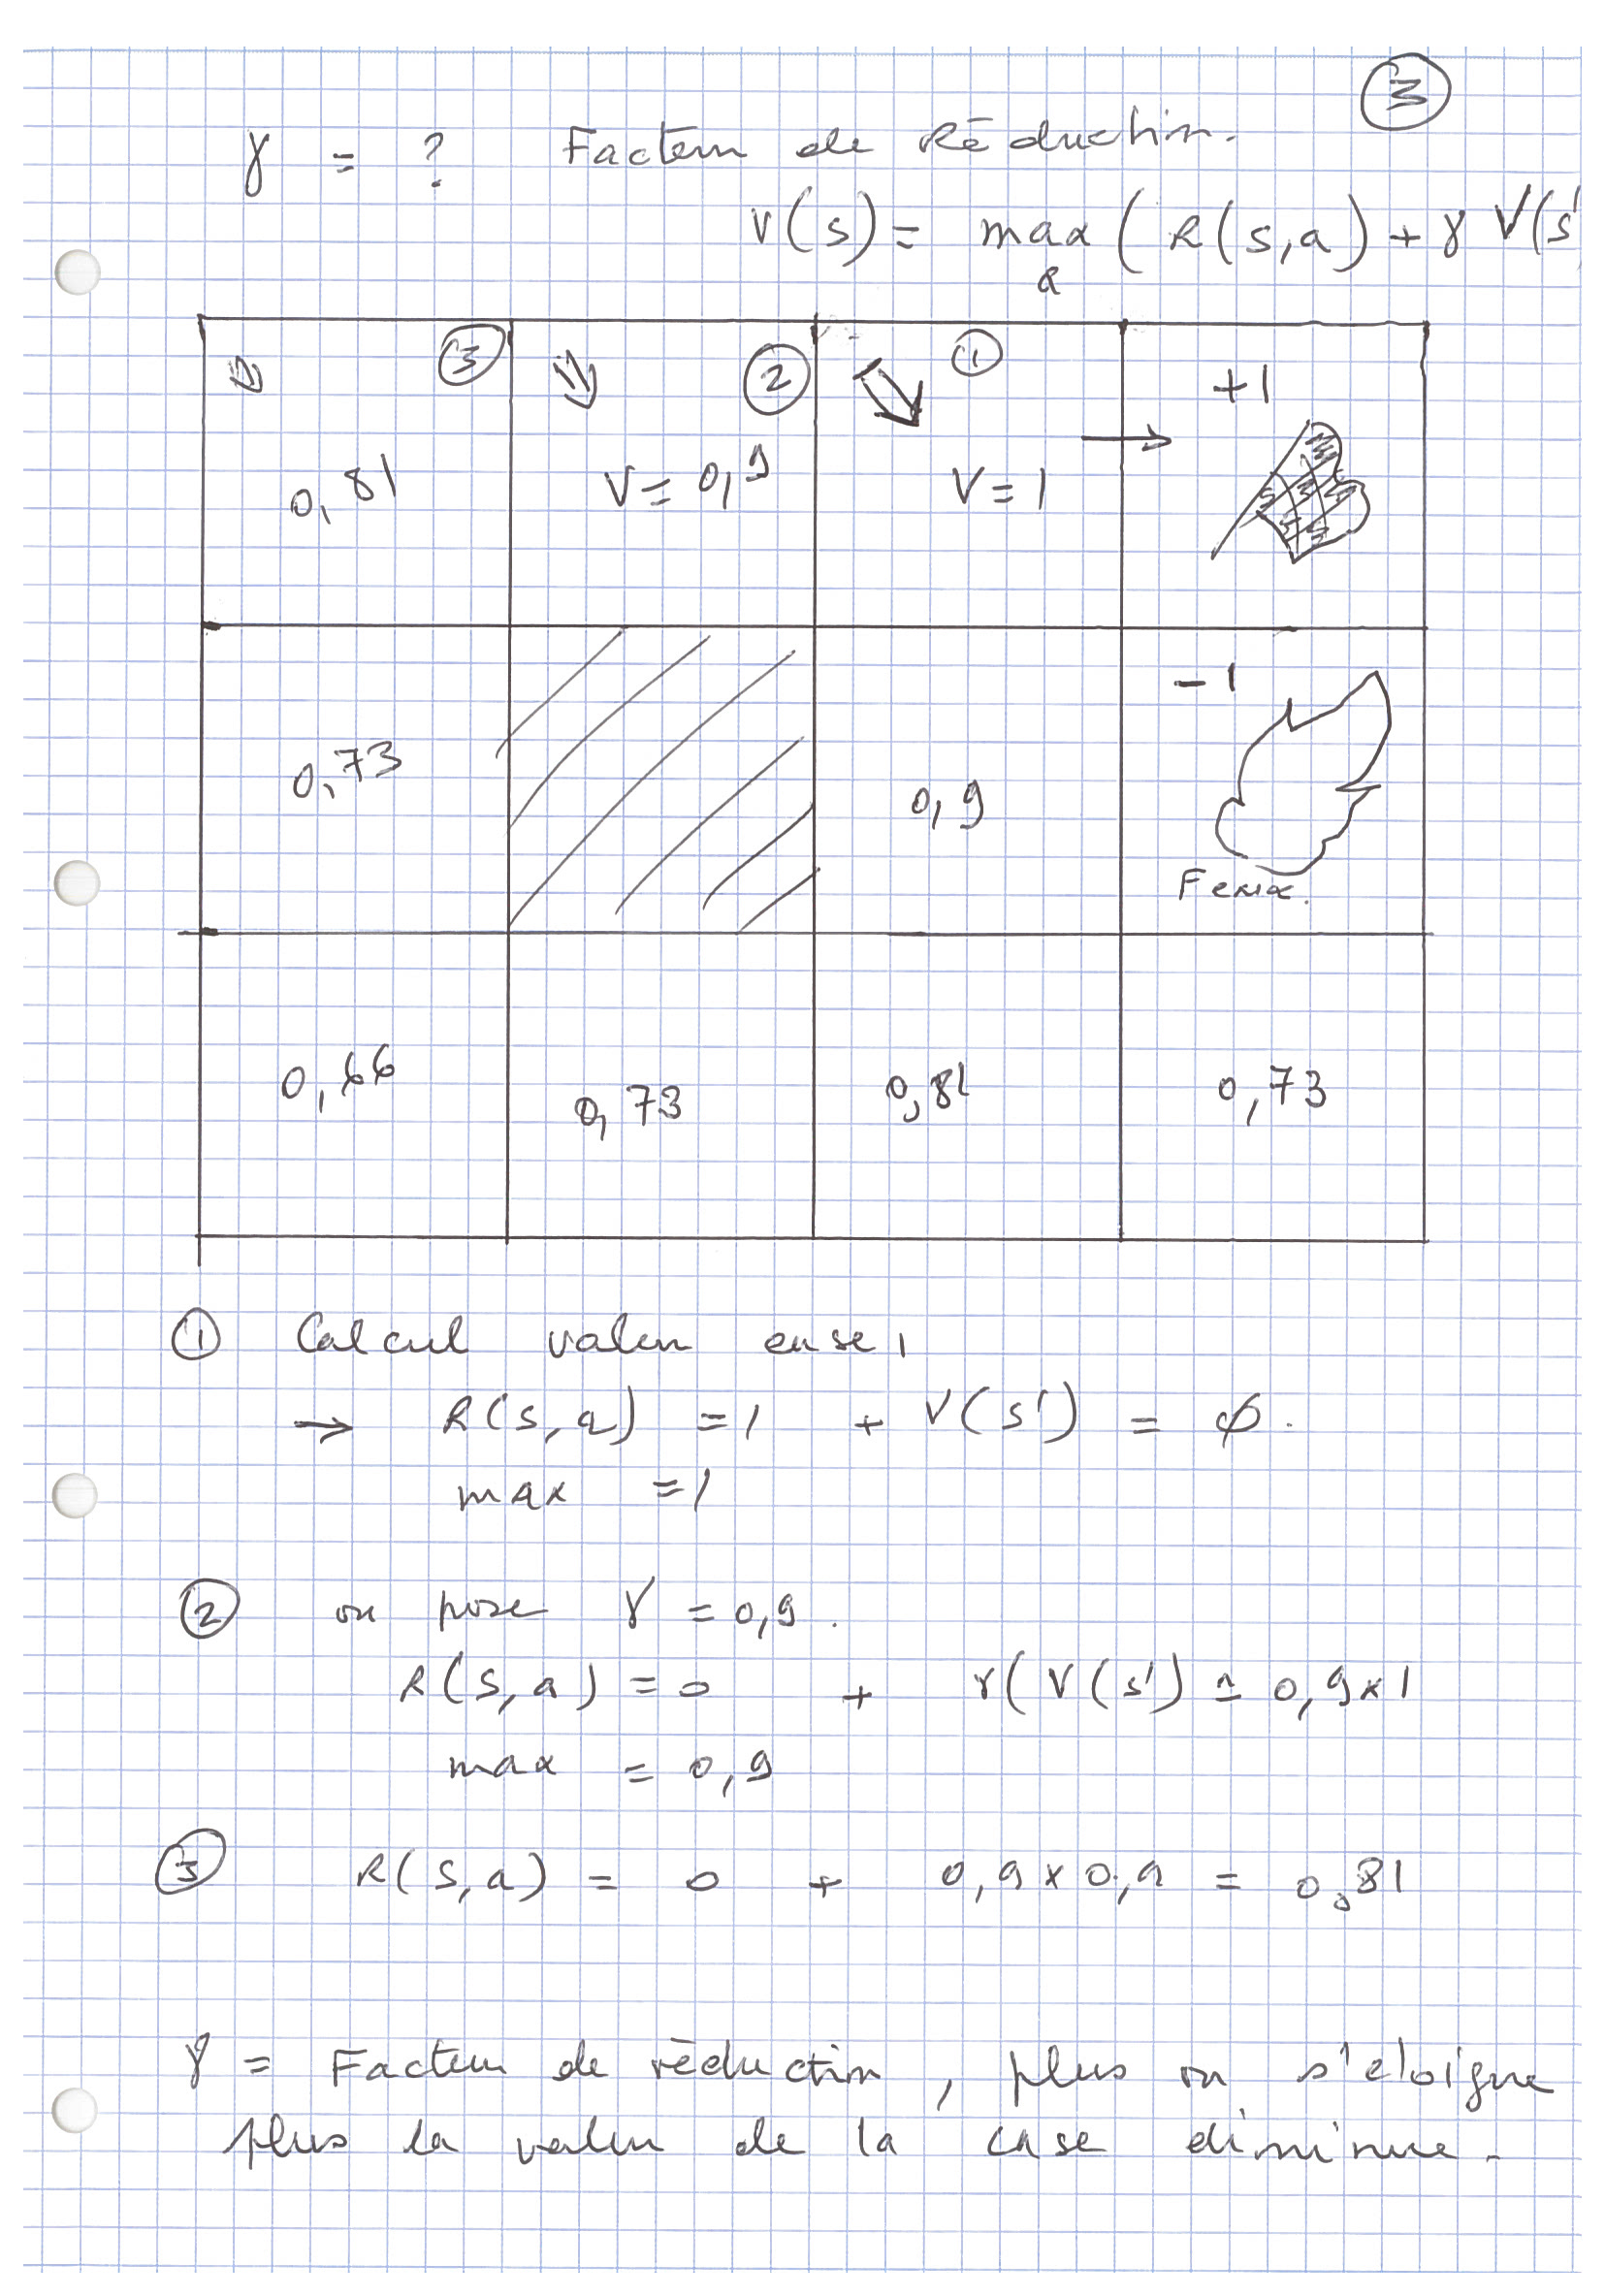 3
γ = ? Facteur de Réduction.
V(s) = max ( R(s,a) + γ V(s'
a
3 2 1 +1
0,81 V = 0,9 V = 1 →
-1
0,73 0,9
0,66 0,73 0,81 0,73
① Calcul valeur case 1
→ R(s,a) = 1 + V(s') = ø.
max = 1
② on pose γ = 0,9.
R(s,a) = 0 + γ( V(s') = 0,9 x 1
max = 0,9
③ R(s,a) = 0 + 0,9 x 0,9 = 0,81
γ = Facteur de réduction, plus on s'eloigne
plus la valeur de la case diminue.